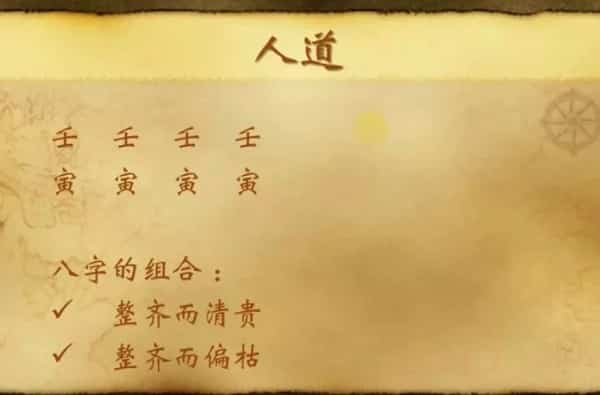 人道
壬 壬 壬 壬
寅 寅 寅 寅
八字的组合：
✓ 整齐而清贵
✓ 整齐而偏枯